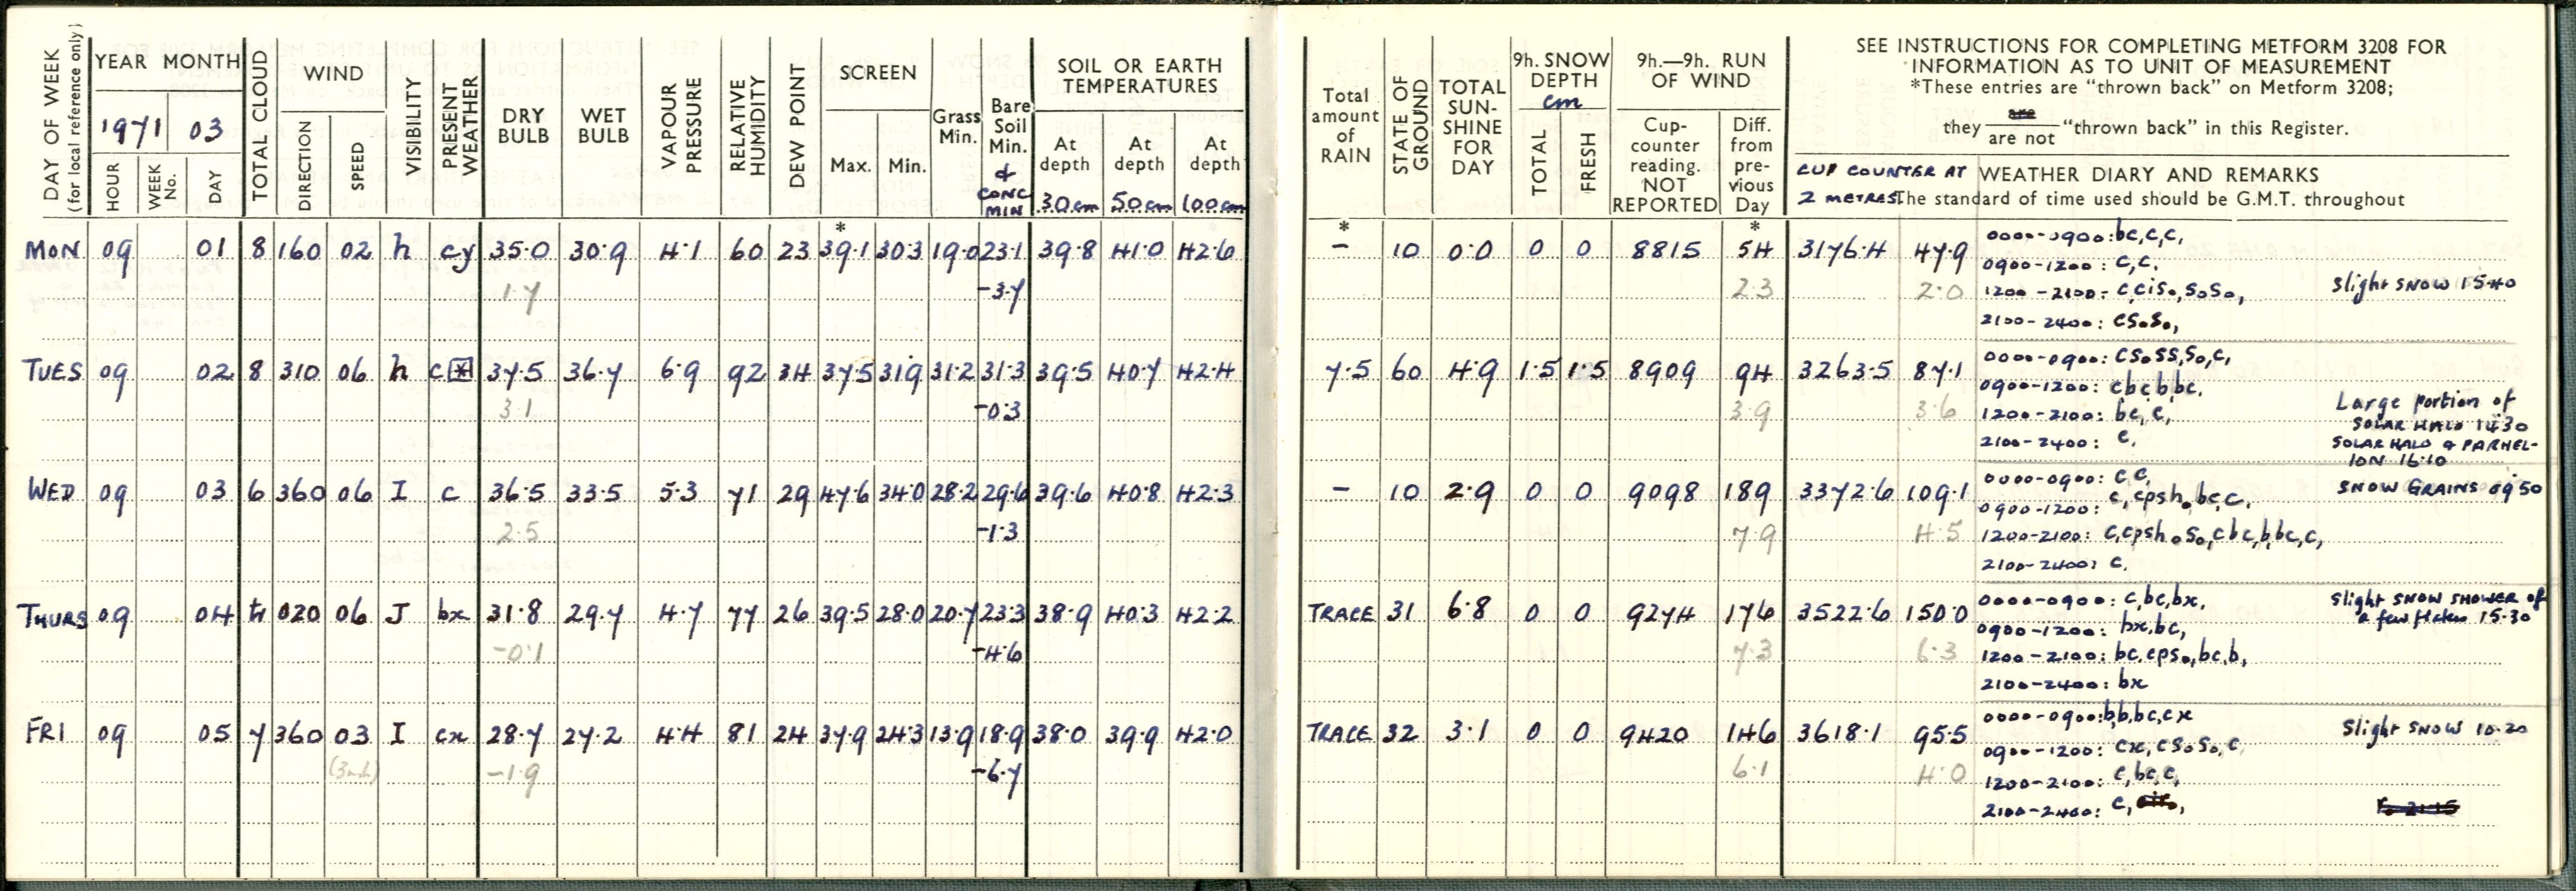 DAY OF WEEK
(for local reference only)
YEAR MONTH
1971 03
HOUR
WEEK No.
DAY
TOTAL CLOUD
WIND
DIRECTION
SPEED
VISIBILITY
PRESENT WEATHER
DRY BULB
WET BULB
VAPOUR PRESSURE
RELATIVE HUMIDITY
DEW POINT
SCREEN
Max. Min.
Grass Min.
Bare Soil Min.
& CONC MIN
SOIL OR EARTH TEMPERATURES
At depth 30 cm
At depth 50 cm
At depth 100 cm
Total amount of RAIN
STATE OF GROUND
TOTAL SUN-SHINE FOR DAY
9h. SNOW DEPTH
cm
TOTAL
FRESH
9h.—9h. RUN OF WIND
Cup-counter reading. NOT REPORTED
Diff. from pre-vious Day
SEE INSTRUCTIONS FOR COMPLETING METFORM 3208 FOR
INFORMATION AS TO UNIT OF MEASUREMENT
*These entries are "thrown back" on Metform 3208;
are
they are not "thrown back" in this Register.
CUP COUNTER AT 2 METRES
WEATHER DIARY AND REMARKS
The standard of time used should be G.M.T. throughout
* * *
MON 09 01 8 160 02 h cy 35.0 30.9 4.1 60 23 39.1 30.3 19.0 23.1 39.8 41.0 42.6 – 10 0.0 0 0 8815 54 3176.4 47.9 0000-0900: bc,c,c,
0900-1200: c,c.
1.7 -3.7 2.3 2.0 1200-2100- c,ciso,soso, slight SNOW 15.40
2100-2400: csoso,
TUES 09 02 8 310 06 h c* 37.5 36.7 6.9 92 34 37.5 31.9 31.2 31.3 39.5 40.7 42.4 7.5 60 4.9 1.5 1.5 8909 94 3263.5 87.1 0000-0900: csoss,so,c,
0900-1200: cbc,b,bc.
3.1 -0.3 3.9 3.6 1200-2100: bc,c, Large portion of
SOLAR HALO 1430
2100-2400: c. SOLAR HALO & PARHEL-
ION 16.10
WED 09 03 6 360 06 I c 36.5 33.5 5.3 71 29 47.6 34.0 28.2 29.6 39.6 40.8 42.3 – 10 2.9 0 0 9098 189 3372.6 109.1 0000-0900: c,c, SNOW GRAINS 09 50
0900-1200: c,cpsho,bc,c,
2.5 -1.3 7.9 4.5 1200-2100: c,cpsho so,cbc,b,bc,c,
2100-2400: c,
THURS 09 04 020 06 J bx 31.8 29.7 4.7 77 26 39.5 28.0 20.7 23.3 38.9 40.3 42.2 TRACE 31 6.8 0 0 9274 176 3522.6 150.0 0000-0900: c,bc,bx, slight SNOW SHOWER of
a few flakes 15.30
0900-1200: bx,bc,
-0.1 -4.6 7.3 6.3 1200-2100: bc,cpso,bc,b,
2100-2400: bx
FRI 09 05 7 360 03 I cx 28.7 27.2 4.4 81 24 37.9 24.3 13.9 18.9 38.0 39.9 42.0 TRACE 32 3.1 0 0 9420 146 3618.1 95.5 0000-0900: bb,bc,cx Slight SNOW 10.20
0900-1200: cx,csoso,c,
-1.9 -6.7 6.1 4.0 1200-2100: c,bc,c,
2100-2400: c,